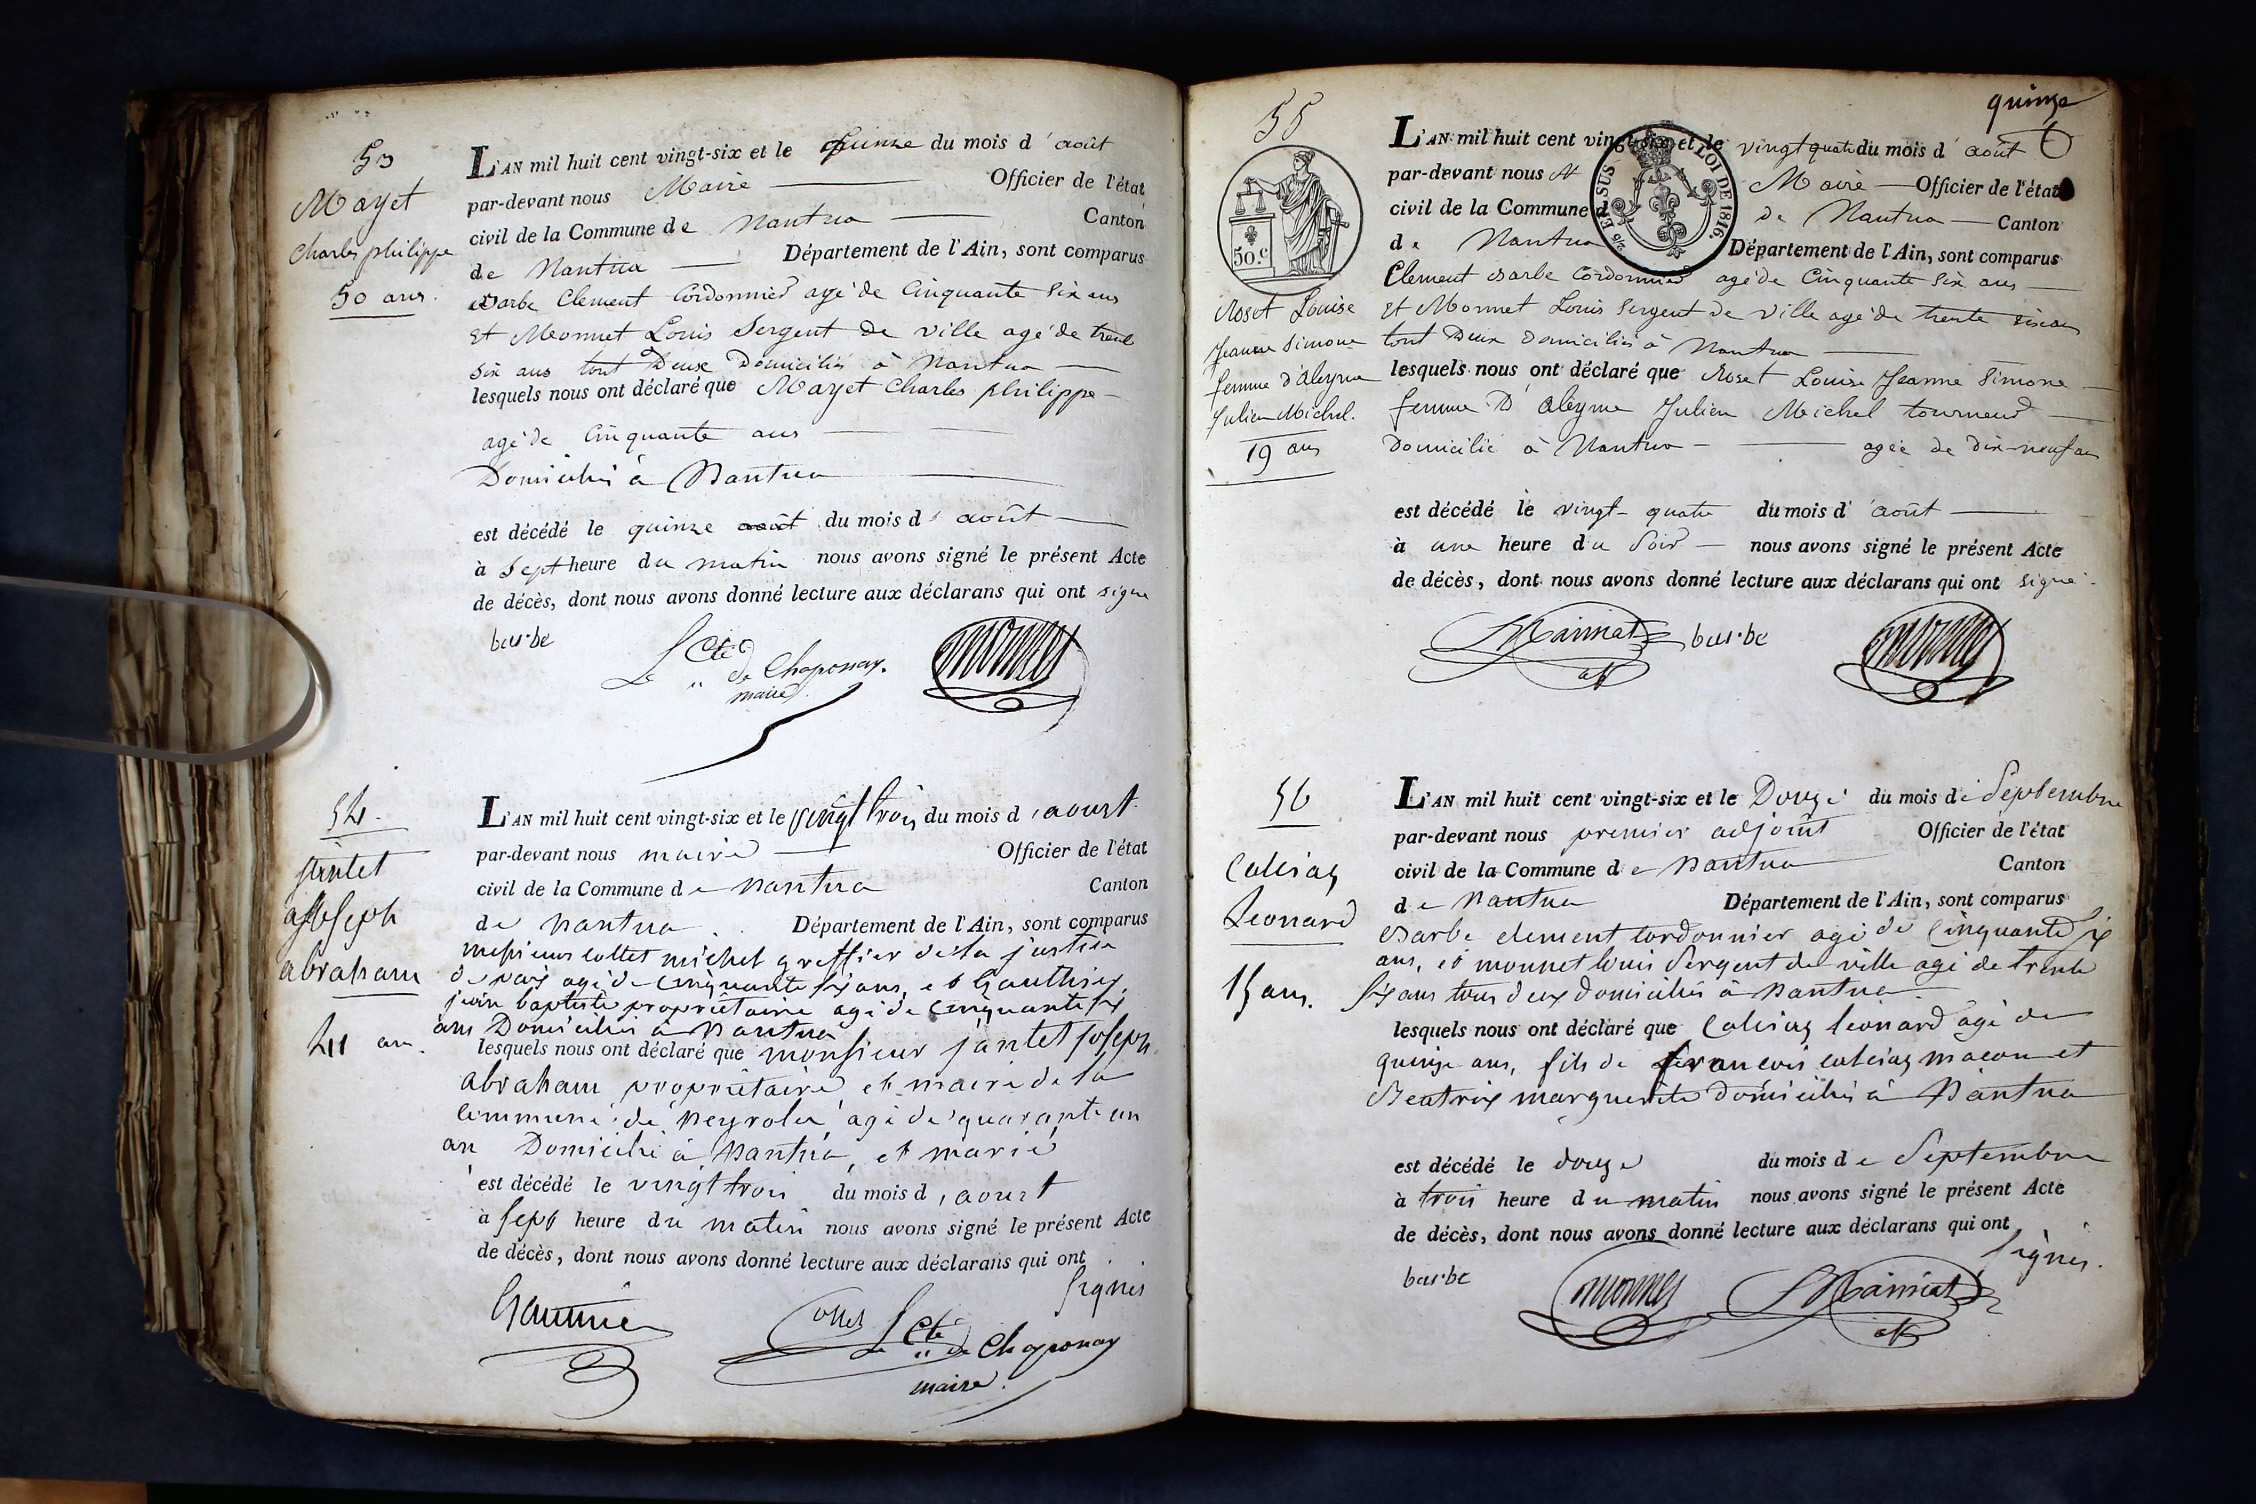 53
Mayet
Charles philippe
50 ans.
L'AN mil huit cent vingt-six et le quinze du mois d'août
par-devant nous Maire Officier de l'état
civil de la Commune de Nantua Canton
de Nantua Département de l'Ain, sont comparus
Barbe Clement Cordonnier agé de Cinquante six ans
et Monnet Louis Sergent de ville agé de trente
six ans tout Deux Domiciliés à Nantua
lesquels nous ont déclaré que Mayet Charles philippe
agé de Cinquante ans
Domicilié à Nantua
est décédé le quinze août du mois d'août
à sept heure du matin nous avons signé le présent Acte
de décès, dont nous avons donné lecture aux déclarans qui ont signé
barbe
Le Cte de Chaponay.
maire.
monnet
54.
jantet
joseph
abraham
41 an.
L'AN mil huit cent vingt-six et le vingt trois du mois d'aoust
par-devant nous maire Officier de l'état
civil de la Commune de Nantua Canton
de Nantua Département de l'Ain, sont comparus
messieurs collet michel greffier de la justice
de paix agé de cinquante six ans, et Gauthier
jean baptiste propriétaire agé de cinquante six
ans Domiciliés à Nantua
lesquels nous ont déclaré que monsieur jantet joseph
abraham propriétaire et maire de la
commune de Neyrolle agé de quarante un
an Domicilié à Nantua, et marié
est décédé le vingt trois du mois d'aoust
à sept heure du matin nous avons signé le présent Acte
de décès, dont nous avons donné lecture aux déclarans qui ont
signés
Gauthier
Collet
Le Cte de Chaponay
maire.
quinze
55
50.c
Roset Louise
Jeanne Simone
femme d'Aleyme
Julien Michel.
19 ans
L'AN mil huit cent vingt-six et le vingt quatre du mois d'août
LOI DE 1816.
par-devant nous Maire Officier de l'état
civil de la Commune de Nantua Canton
de Nantua Département de l'Ain, sont comparus
Clement Barbe Cordonnier agé de Cinquante six ans
et Monnet Louis Sergent de ville agé de trente six ans
tout Deux Domiciliés à Nantua
lesquels nous ont déclaré que Roset Louise Jeanne Simone
femme D'Aleyme Julien Michel tourneur
Domicilié à Nantua agée de dix-neuf ans
est décédé le vingt-quatre du mois d'août
à une heure du Soir nous avons signé le présent Acte
de décès, dont nous avons donné lecture aux déclarans qui ont signé.
barbe
monnet
56
Calciaz
Leonard
15 ans.
L'AN mil huit cent vingt-six et le Douze du mois de Septembre
par-devant nous premier adjoint Officier de l'état
civil de la Commune de Nantua Canton
de Nantua Département de l'Ain, sont comparus
Barbe clement cordonnier agé de Cinquante six
ans, et monnet louis Sergent de ville agé de trente
six ans tous deux domiciliés à Nantua
lesquels nous ont déclaré que Calciaz leonard agé de
quinze ans, fils de francois calciaz macon et
Beatrix marguerite domiciliés à Nantua
est décédé le douze du mois de Septembre
à trois heure du matin nous avons signé le présent Acte
de décès, dont nous avons donné lecture aux déclarans qui ont
signés.
barbe
monnet